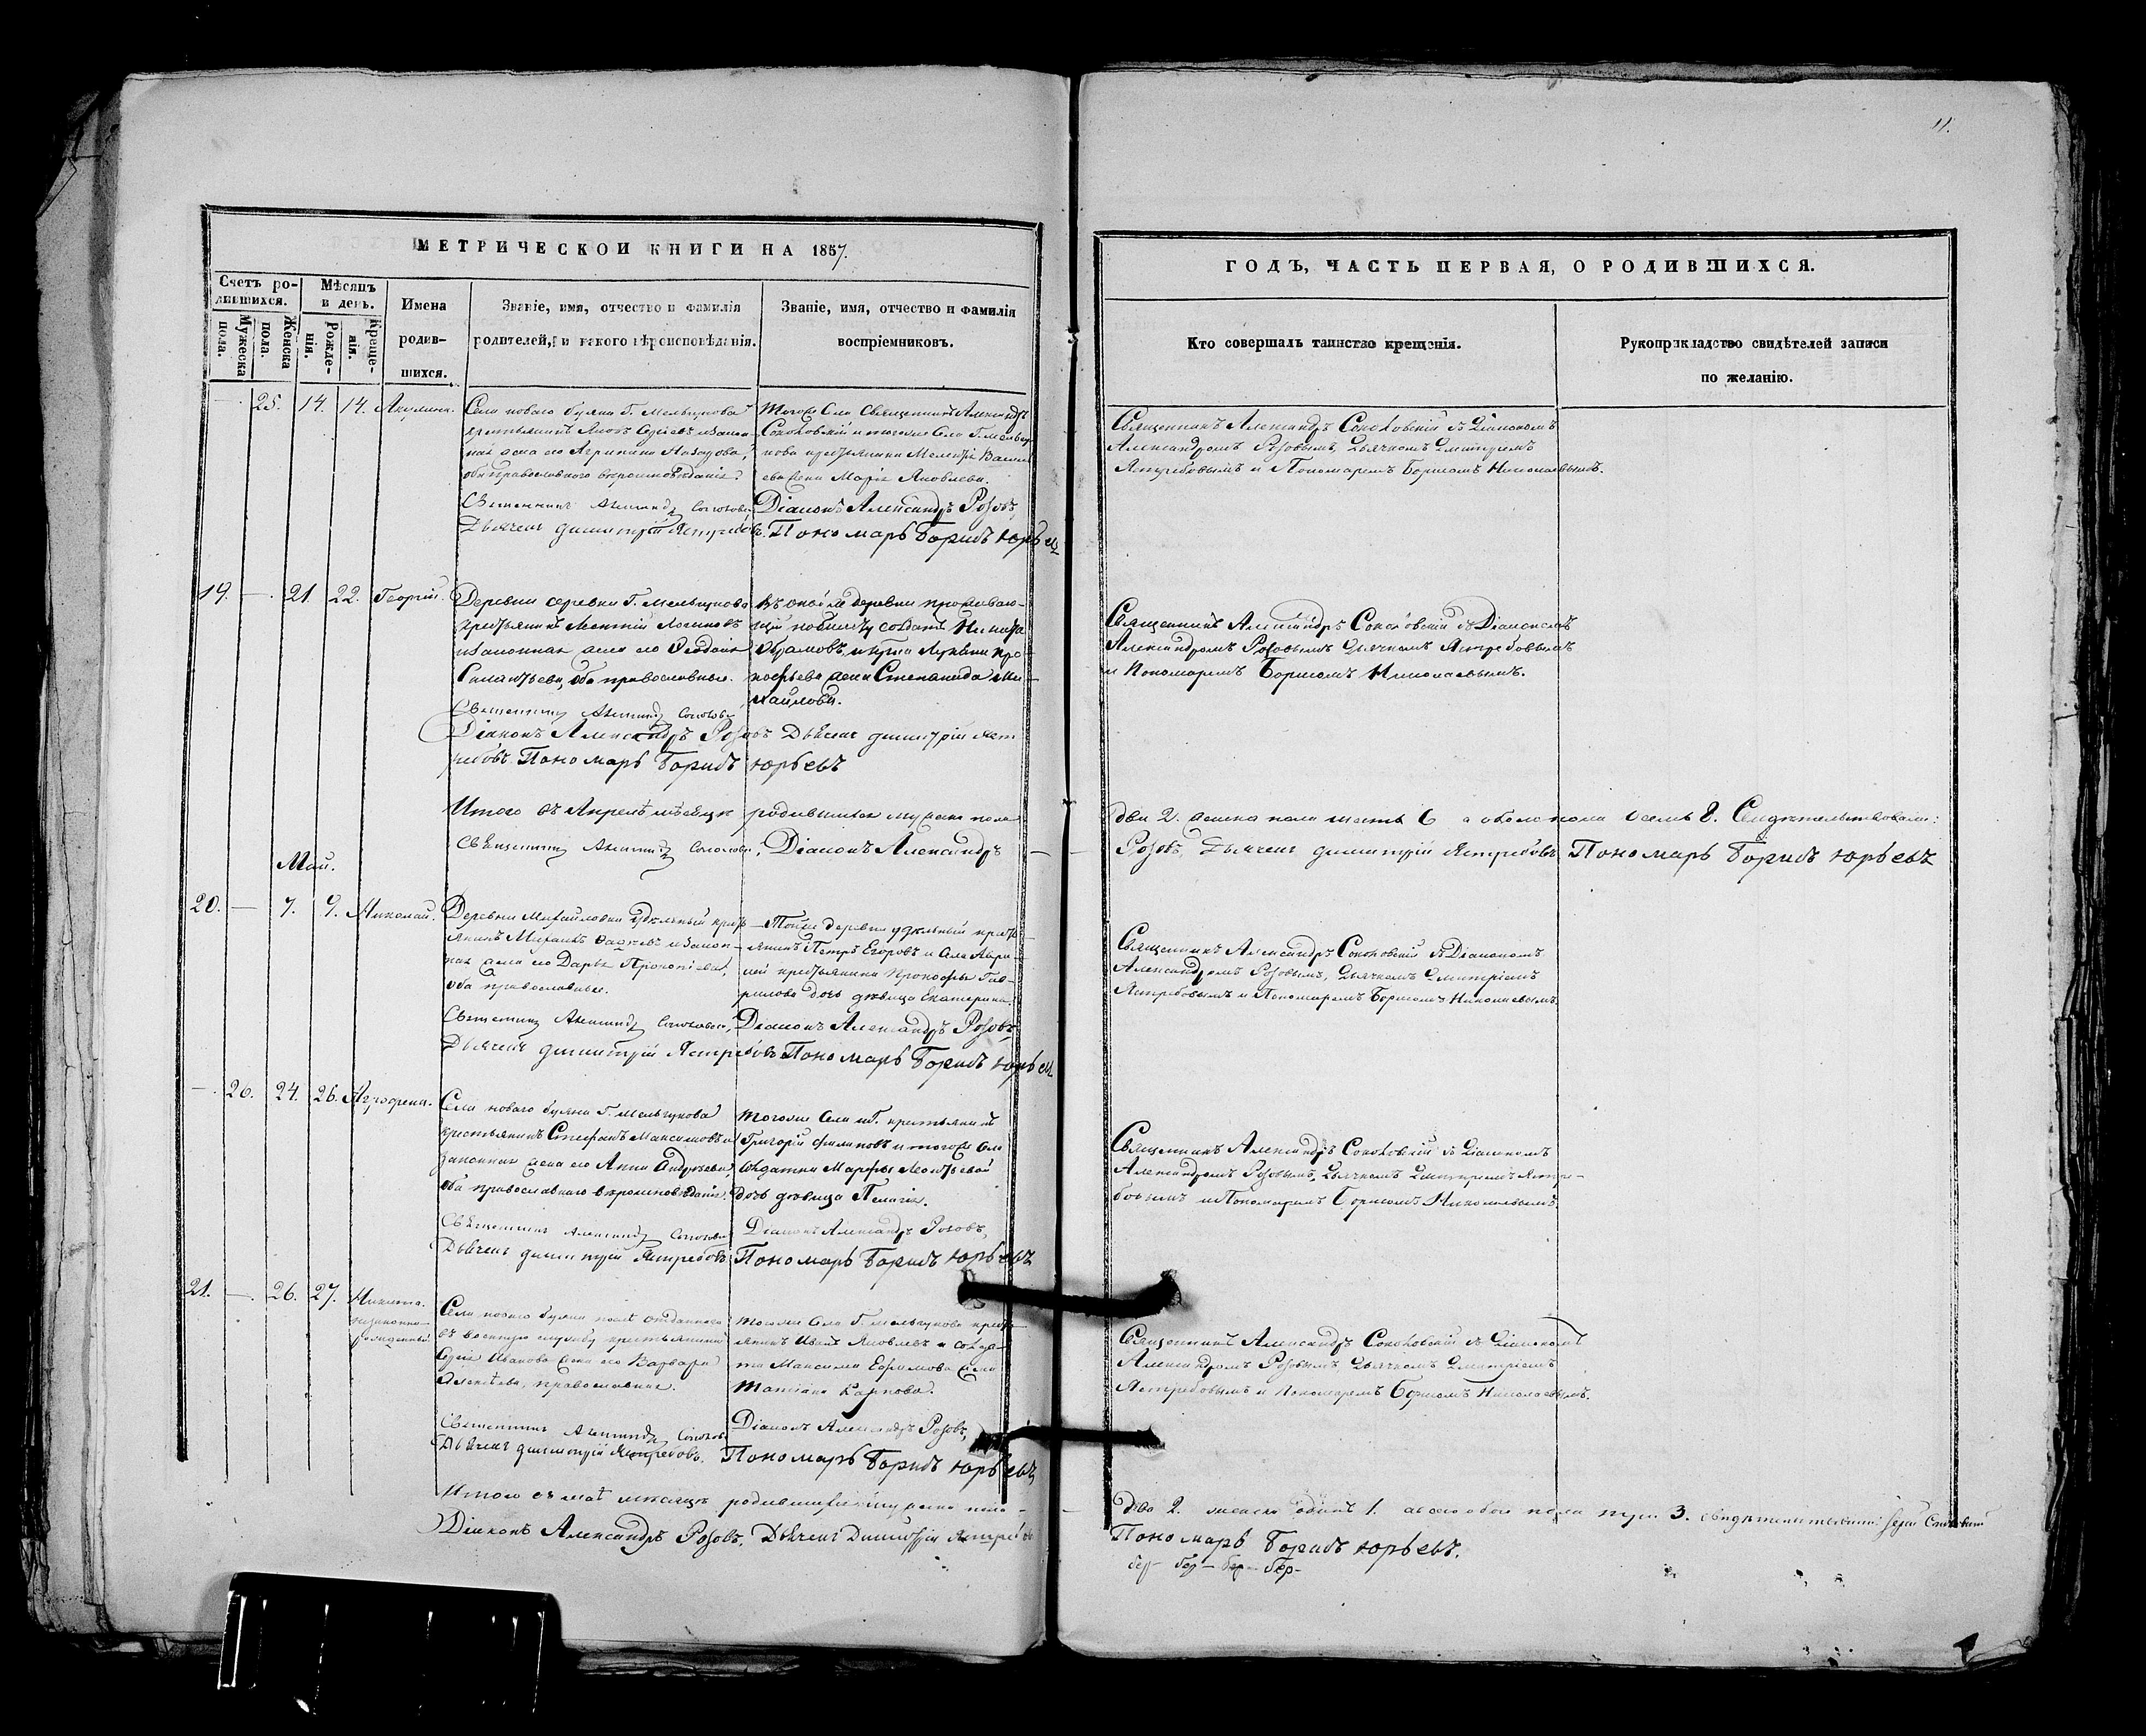 11.
МЕТРИЧЕСКОЙ КНИГИ НА 1857.
Счетъ ро-
дившихся.
Мѣсяцъ
и день.
Мужеска
пола.
Женска
пола.
Рожде-
нія.
Креще-
нія.
Имена
родив-
шихся.
Званіе, имя, отчество и фамилія
родителей, и какого вѣроисповѣданія.
Званіе, имя, отчество и фамилія
воспріемниковъ.
— 25. 14. 14. Акулина.
Села новаго буяна Г. Мельгунова
крестьянинъ Яковъ Сергѣевъ и закон-
ная жена его Агрипина
оба православнаго вѣроисповѣданія.
Тогоже Села Священникъ Александръ
Соколовскій и тогоже Села Г. Мельгу-
нова крестьянина Василь
ева жена Марія Яковлева.
Священникъ Александръ Соколовскій
Діаконъ Александръ Розовъ,
Дьячекъ Димитрій Ястребовъ. Пономарь Борисъ Юрьевъ
19. — 21 22. Георгій.
Деревни сергѣвки Г. Мельгунова
крестьянинъ Логиновъ
и законная жена его
оба православные.
въ оной же деревни прожеваю-
щій солдатъ Никита
Абрамовъ, и Про
кофьева жена Степанида Ми-
хайлова.
Священникъ Александръ Соколовскій
Діаконъ Александръ Розовъ Дьячекъ Димитрій Яст
ребовъ Пономарь Борисъ Юрьевъ
Итого въ Апрелѣ мѣсяцѣ родившихся мужеска пола
Священникъ Александръ Соколовскій, Діаконъ Александръ
Май.
20. — 7. 9. Николай.
Деревни Михайловки удѣльный кресть
янинъ Михаилъ и закон-
ная жена его Дарья Прокопіева,
оба православные.
Тойже деревни удѣльный кресть
янинъ Петръ Егоровъ и Села
крестьянина Прокофья Гав-
рилова дочь дѣвица Екатерина.
Священникъ Александръ Соколовскій, Діаконъ Александръ Розовъ,
Дьячекъ Димитрій Ястребовъ Пономарь Борисъ Юрьевъ
— 26. 24. 26. Агрофена.
Села новаго буяна Г. Мельгунова
крестьянинъ Стефанъ Максимовъ и
законная жена его Анна Андреева
оба православнаго вѣроисповѣданія.
Тогоже Села и Г. крестьянинъ
Григорій Филиповъ и тогоже Села
солдатки Марфы Леонтьевой
дочь дѣвица Пелагія.
Священникъ Александръ Соколовскій
Діаконъ Александръ Розовъ,
Дьячекъ Димитрій Ястребовъ Пономарь Борисъ Юрьевъ
21. — 26. 27. Никита.
незаконно-
рожденный.
Села новаго буяна послѣ отданнаго
въ военную службу крестьянина
Сергія Иванова жена его Варвара
Алексѣева, православная.
Тогоже Села Г. Мельгунова кресть
янинъ Иванъ Яковлевъ и солда-
та Максима Ефимова жена
Татіана Карпова.
Священникъ Александръ Соколовскій
Діаконъ Александръ Розовъ,
Дьячекъ Димитрій Ястребовъ. Пономарь Борисъ Юрьевъ
Итого въ маѣ мѣсяцѣ родившихся мужеска пола
Діаконъ Александръ Розовъ, Дьячекъ Димитрій Ястребовъ
ГОДЪ, ЧАСТЬ ПЕРВАЯ, О РОДИВШИХСЯ.
Кто совершалъ таинство крещенія.
Рукоприкладство свидѣтелей записи
по желанію.
Священникъ Александръ Соколовскій съ Діакономъ
Александромъ Розовымъ, Дьячкомъ Димитріемъ
Ястребовымъ и Пономаремъ Борисомъ Николаевымъ.
Священникъ Александръ Соколовскій съ Діакономъ
Александромъ Розовымъ Дьячкомъ Ястребовымъ
и Пономаремъ Борисомъ Николаевымъ.
два 2. женска пола шесть 6 а обоего пола осемь 8. Свидѣтельствовали:
Розовъ, Дьячекъ Димитрій Ястребовъ Пономарь Борисъ Юрьевъ
Священникъ Александръ Соколовскій съ Діакономъ
Александромъ Розовымъ, Дьячкомъ Димитріемъ
Ястребовымъ и Пономаремъ Борисомъ Николаевымъ.
Священникъ Александръ Соколовскій съ Діакономъ
Александромъ Розовымъ, Дьячкомъ Димитріемъ Ястре-
бовымъ и Пономаремъ Борисомъ Николаевымъ.
Священникъ Александръ Соколовскій съ Діакономъ
Александромъ Розовымъ, Дьячкомъ Димитріемъ
Ястребовымъ и Пономаремъ Борисомъ Николаевымъ.
два 2. женска одинъ 1. а всего обоего пола три 3.
Пономарь Борисъ Юрьевъ.